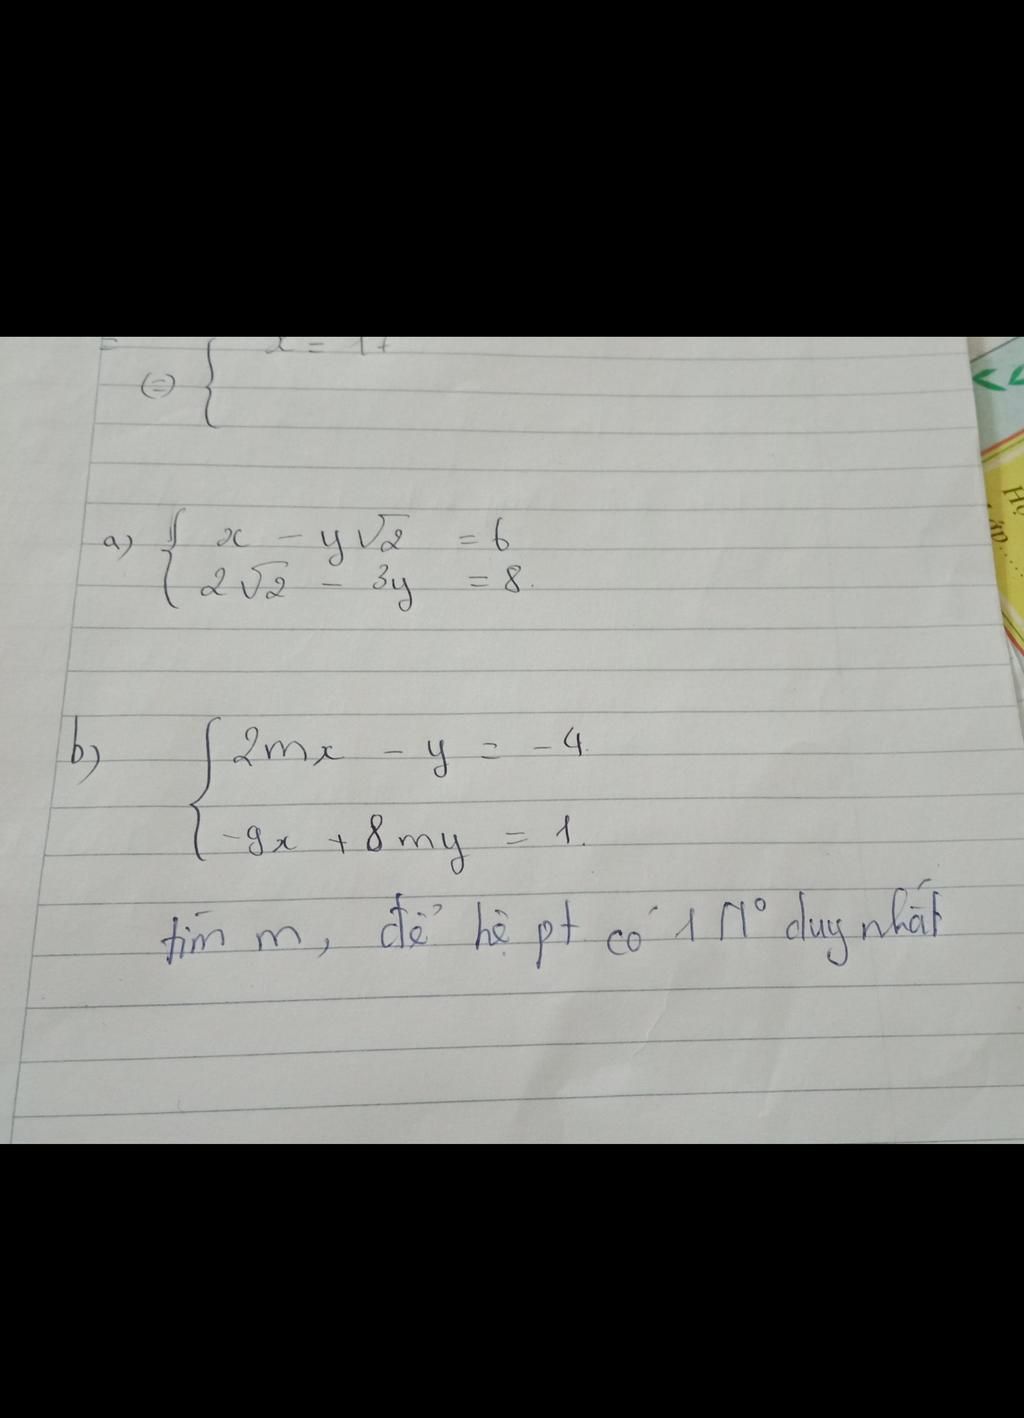 (=) {
a) { x - y√2 = 6
2√2 - 3y = 8.
b) { 2mx - y = -4.
-9x + 8my = 1.
tìm m, để hệ pt có 1 n° duy nhất